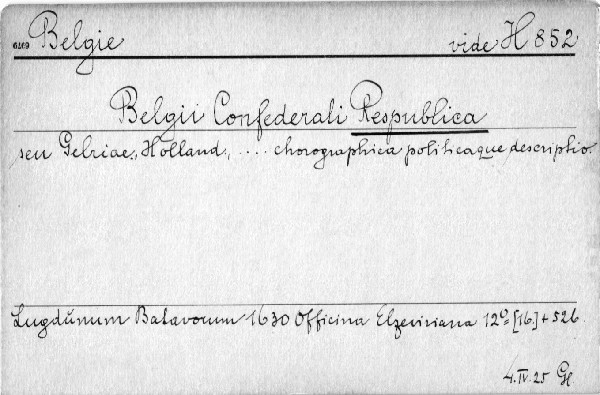 Belgie vide H 852
Belgii Confederati Respublica
seu Gelriae, Holland., .... chorographica politicaque descriptio.
Lugdunum Batavorum 1630 Officina Elzeviriana 12º [16] + 526.
4. IV. 25